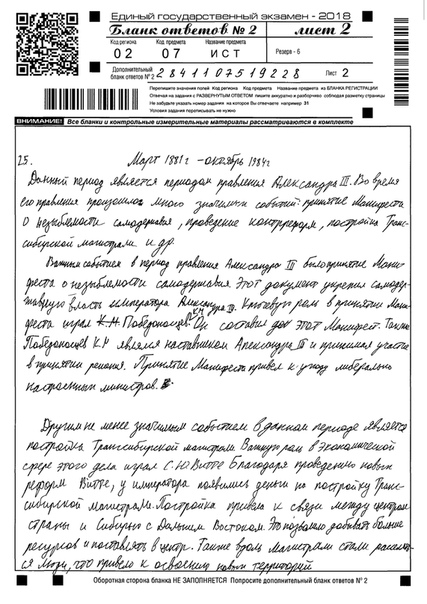 Единый государственный экзамен - 2018
Бланк ответов № 2
лист 2
Код региона Код предмета Название предмета
02 07 ИСТ Резерв - 6
Дополнительный бланк ответов № 2
2841107519228 Лист 2
Перепишите значения полей Код региона, Код предмета, Название предмета из БЛАНКА РЕГИСТРАЦИИ
Отвечая на задания с РАЗВЕРНУТЫМ ОТВЕТОМ пишите аккуратно и разборчиво соблюдая разметку страницы
Не забудьте указать номер задания на которое Вы отвечаете например 31
Условия задания переписывать не нужно
ВНИМАНИЕ! Все бланки и контрольные измерительные материалы рассматриваются в комплекте
25. Март 1881г - октябрь 1894г
Данный период является периодом правления Александра III. Во время
его правления произошло много значимых событий: принятие Манифеста
о незыблемости самодержавия, проведение контрреформ, постройка Транс-
сибирской магистрали и др.
Важным событием в период правления Александра III было принятие Мани-
феста о незыблемости самодержавия. Этот документ укрепил самодер-
жавную власть императора Александра III. Ключевую роль в принятии Мани-
феста играл Победоносцев К.Н Он составил этот Манифест. Также
Победоносцев К.Н являлся наставником Александра III и принимал участие
в принятии решения. Принятие Манифеста привело к уходу либерально
настроенных министров.
Другим не менее значимым событием в данном периоде является
постройка Транссибирской магистрали. Важную роль в экономической
сфере этого дела играл С.Ю Витте Благодаря проведению новых
реформ Витте, у императора появились деньги на постройку Транс-
сибирской магистрали. Постройка привела к связи между центром
страны и Сибирью с Дальним Востоком. Это позволило добывать больше
ресурсов и поставлять в центр. Также вдоль магистрали стали расселять-
ся люди, что привело к освоению новых территорий
Оборотная сторона бланка НЕ ЗАПОЛНЯЕТСЯ Попросите дополнительный бланк ответов № 2